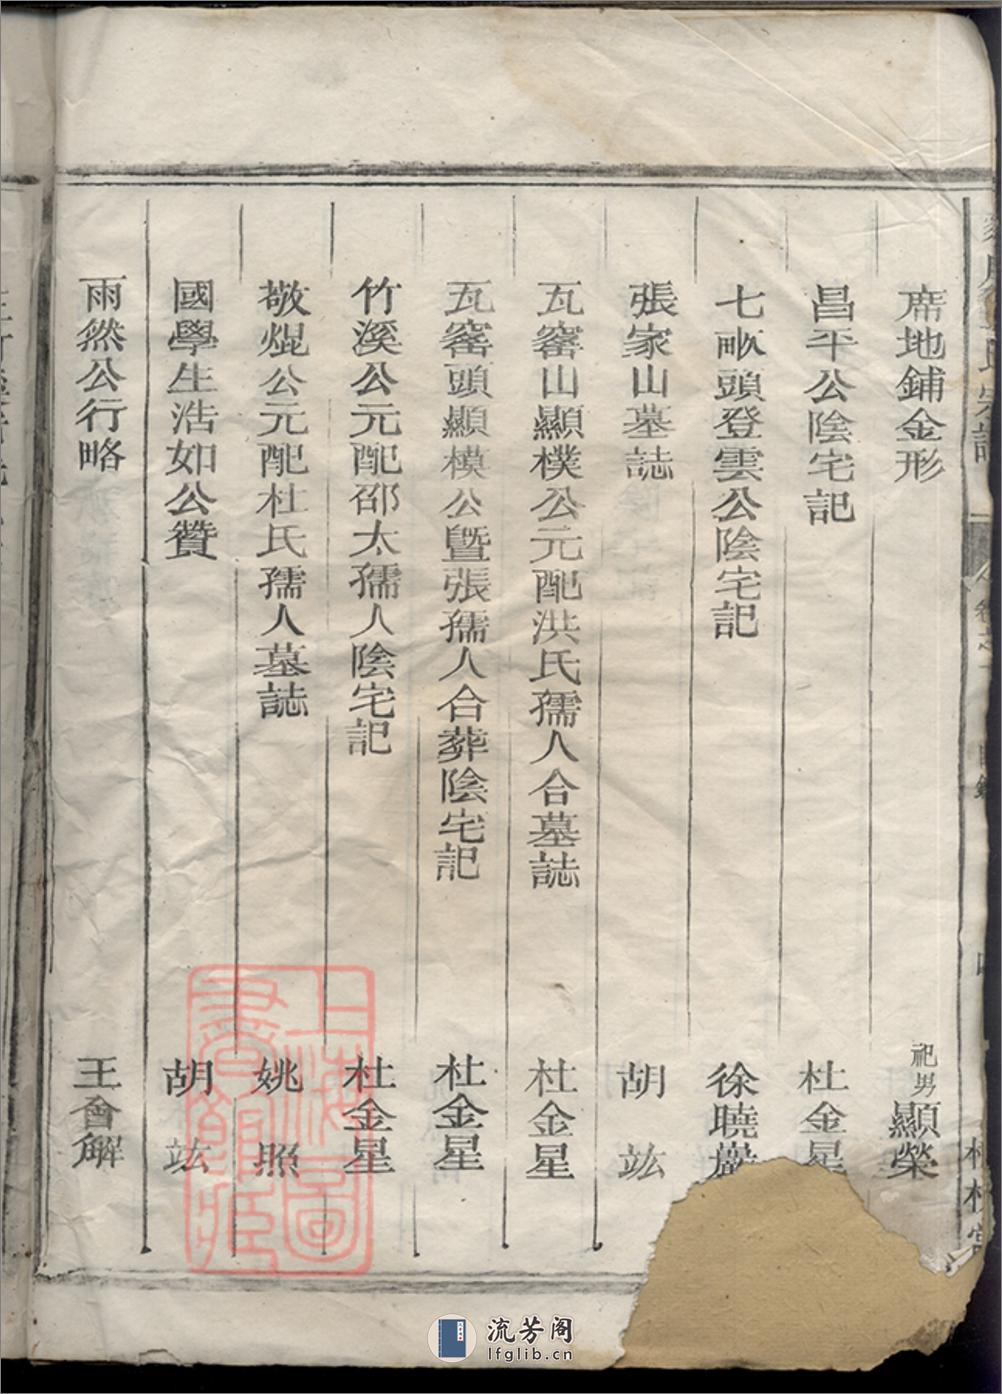 席地鋪金形 祀男顯榮
昌平公陰宅記 杜金星
七畝頭登雲公陰宅記 徐曉巖
張家山墓誌 胡竑
瓦窰山顯樸公元配洪氏孺人合墓誌 杜金星
瓦窰頭顯模公曁張孺人合葬陰宅記 杜金星
竹溪公元配邵太孺人陰宅記 杜金星
敬焜公元配杜氏孺人墓誌 姚照
國學生浩如公贊 胡竑
雨然公行略 王會解
上海圖書館藏
流芳阁
lfglib.cn